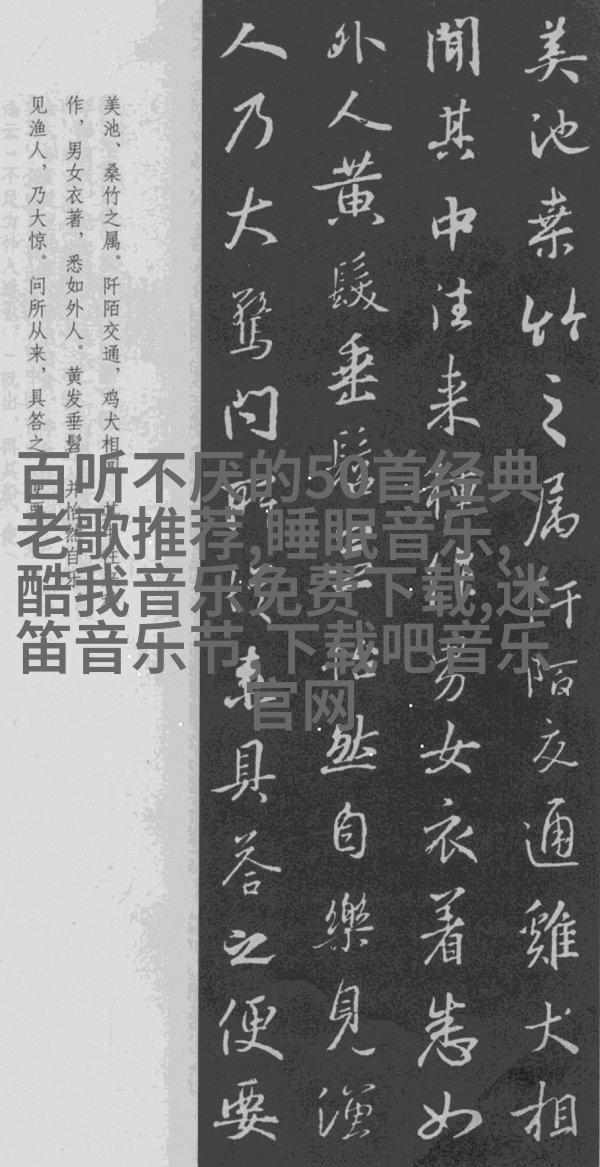 美池桑竹之属阡陌交通雞犬相
聞其中往来種作男女衣着悉如
外人黄髮垂髫并怡然自樂見漁
人乃大驚问所従来具答之便要
美池、桑竹之属。阡陌交通，鸡犬相
作，男女衣著，悉如外人。黄发垂髫，并怡然自乐
见渔人，乃大惊。问所从来，具答之
百听不厌的50首经典
老歌推荐,睡眠音乐,
酷我音乐免费下载,迷
笛音乐节,下载吧音乐
官网